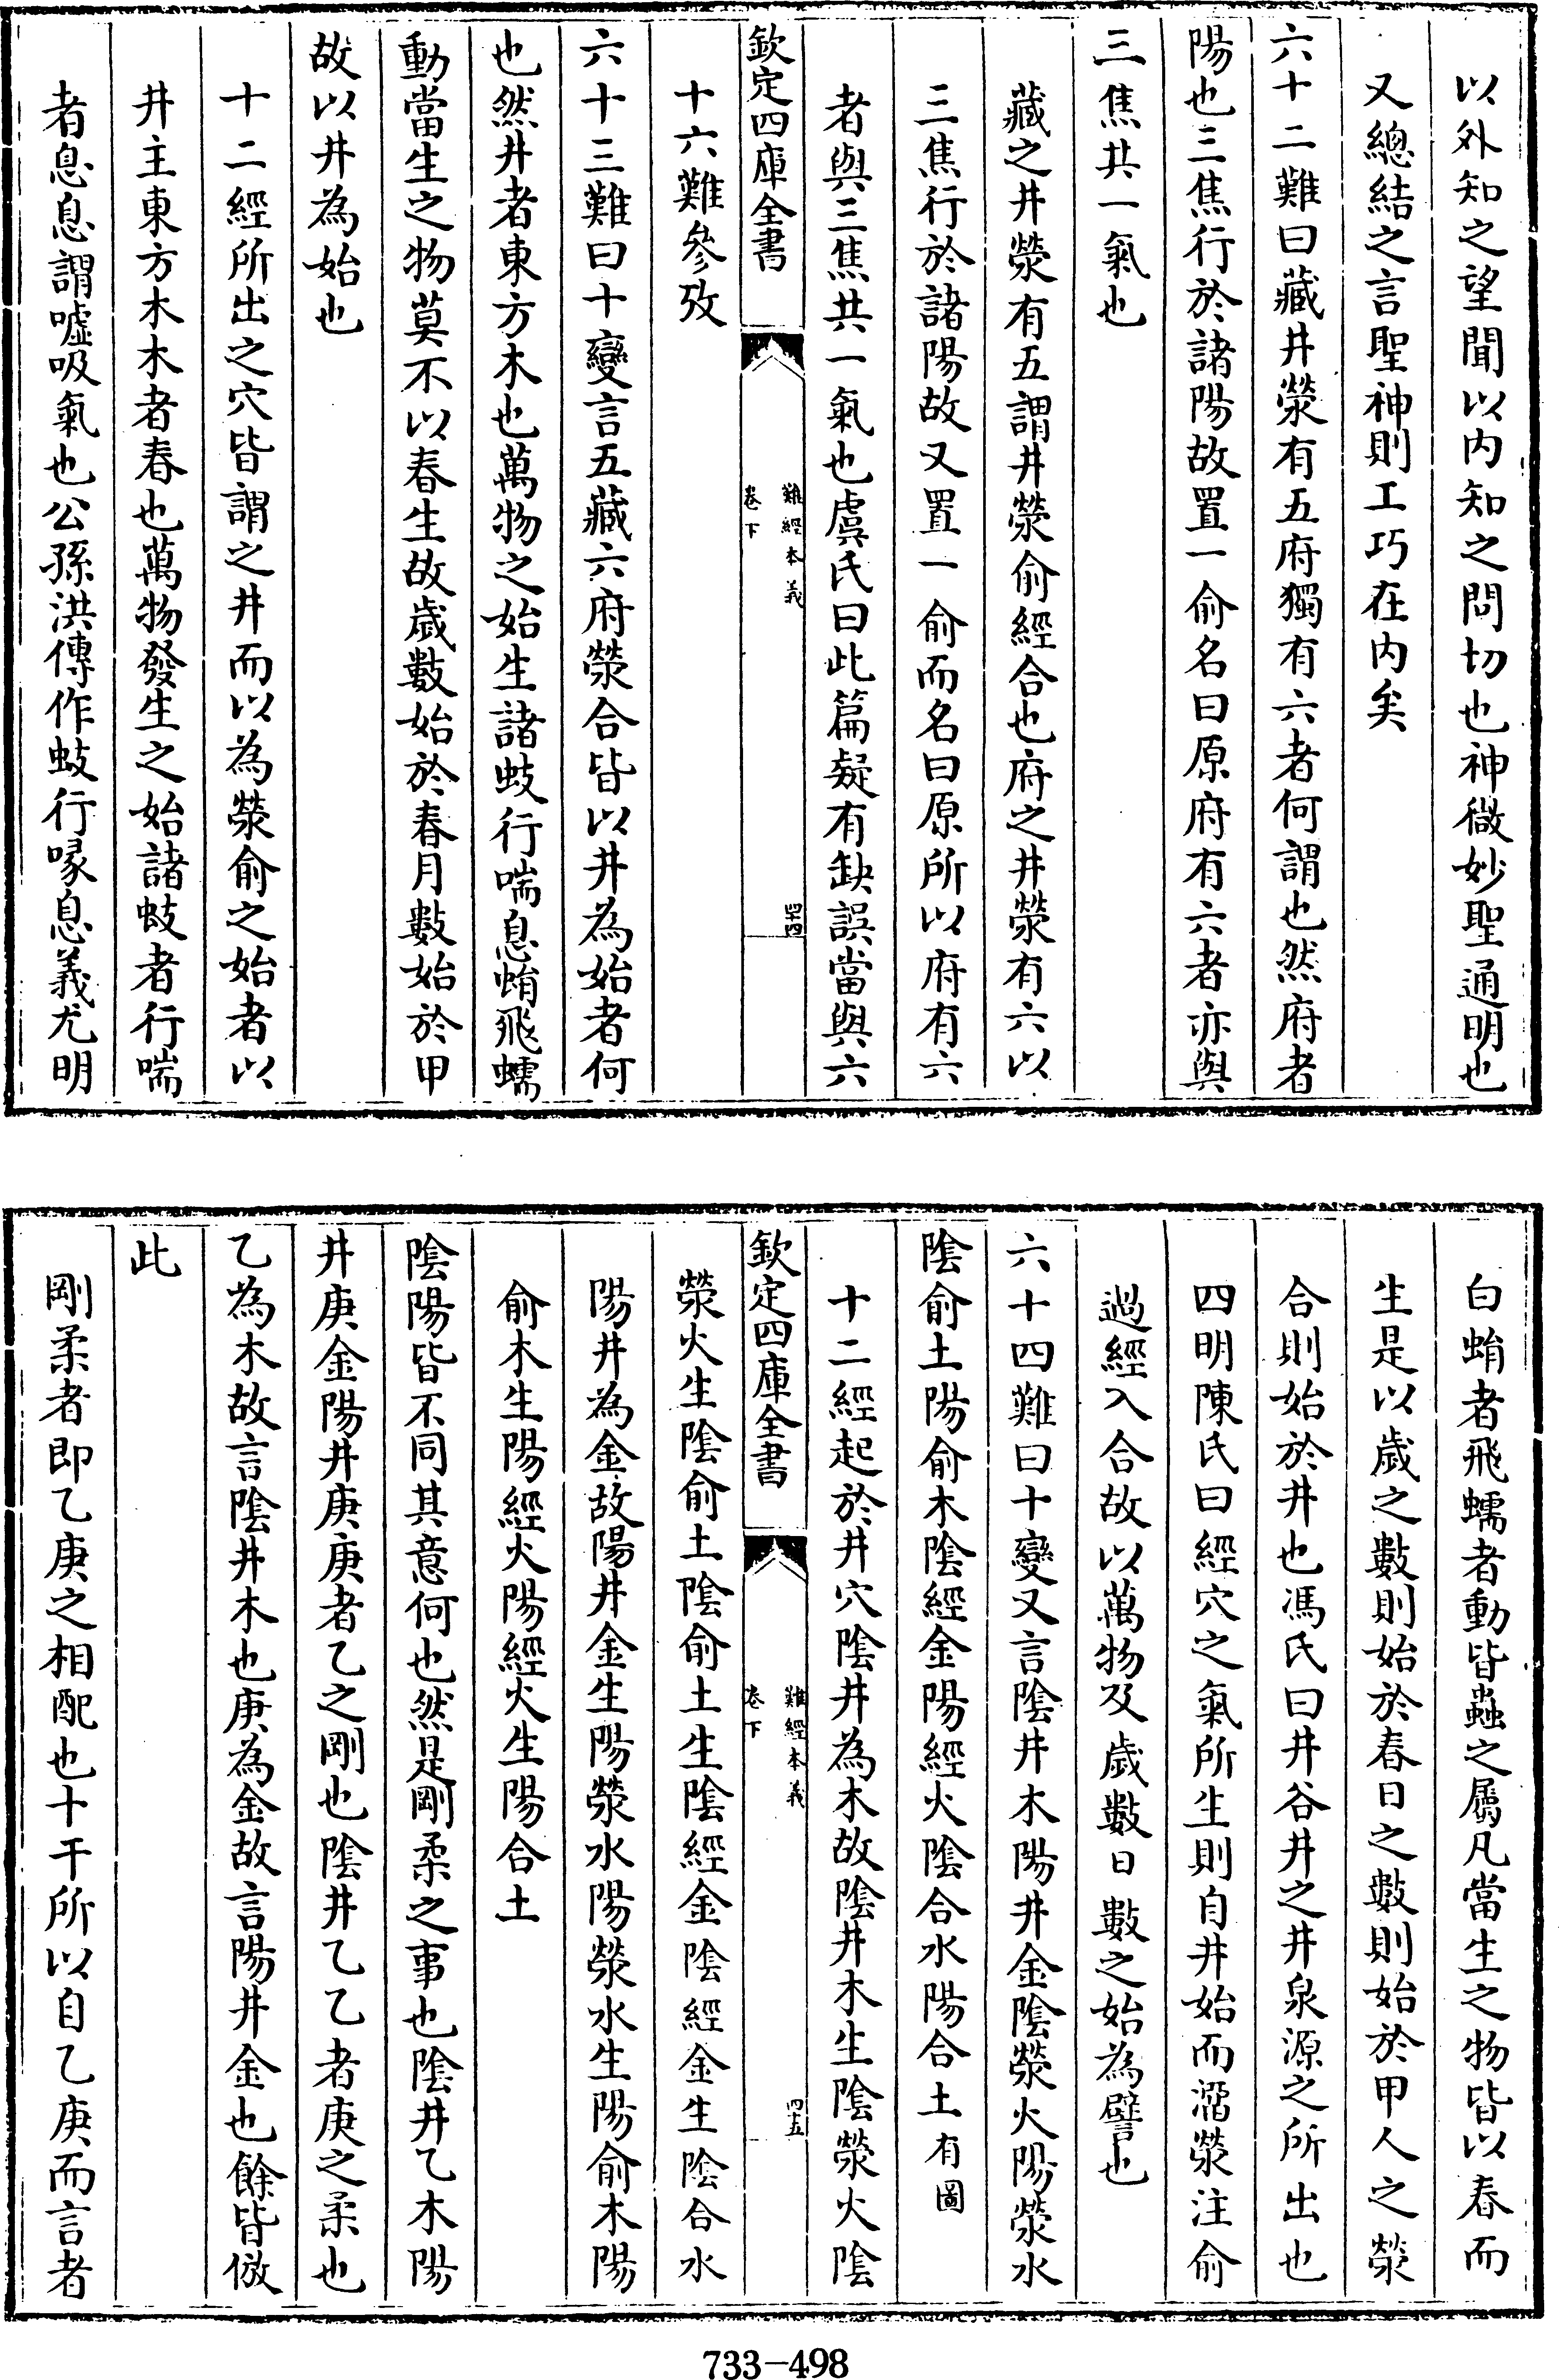 以外知之望聞以内知之問切也神微妙聖通明也
又總結之言聖神則工巧在内矣
六十二難曰藏井滎有五府獨有六者何謂也然府者
陽也三焦行於諸陽故置一俞名曰原府有六者亦與
三焦共一氣也
藏之井滎有五謂井滎俞經合也府之井滎有六以
三焦行於諸陽故又置一俞而名曰原所以府有六
者與三焦共一氣也虞氏曰此篇疑有缺誤當與六
欽定四庫全書
難經本義
卷下
四十四
十六難參攷
六十三難曰十變言五藏六府滎合皆以井為始者何
也然井者東方木也萬物之始生諸蚑行喘息蜎飛蠕
動當生之物莫不以春生故歲數始於春月數始於甲
故以井為始也
十二經所出之穴皆謂之井而以為滎俞之始者以
井主東方木木者春也萬物發生之始諸蚑者行喘
者息息謂噓吸氣也公孫洪傳作蚑行喙息義尤明
白蜎者飛蠕者動皆蟲之屬凡當生之物皆以春而
生是以歲之數則始於春日之數則始於甲人之滎
合則始於井也馮氏曰井谷井之井泉源之所出也
四明陳氏曰經穴之氣所生則自井始而溜滎注俞
過經入合故以萬物及歲數日數之始為譬也
六十四難曰十變又言陰井木陽井金陰滎火陽滎水
陰俞土陽俞木陰經金陽經火陰合水陽合土有圖
十二經起於井穴陰井為木故陰井木生陰滎火陰
欽定四庫全書
難經本義
卷下
四十五
滎火生陰俞土陰俞土生陰經金陰經金生陰合水
陽井為金故陽井金生陽滎水陽滎水生陽俞木陽
俞木生陽經火陽經火生陽合土
陰陽皆不同其意何也然是剛柔之事也陰井乙木陽
井庚金陽井庚庚者乙之剛也陰井乙乙者庚之柔也
乙為木故言陰井木也庚為金故言陽井金也餘皆倣
此
剛柔者即乙庚之相配也十干所以自乙庚而言者
733-498